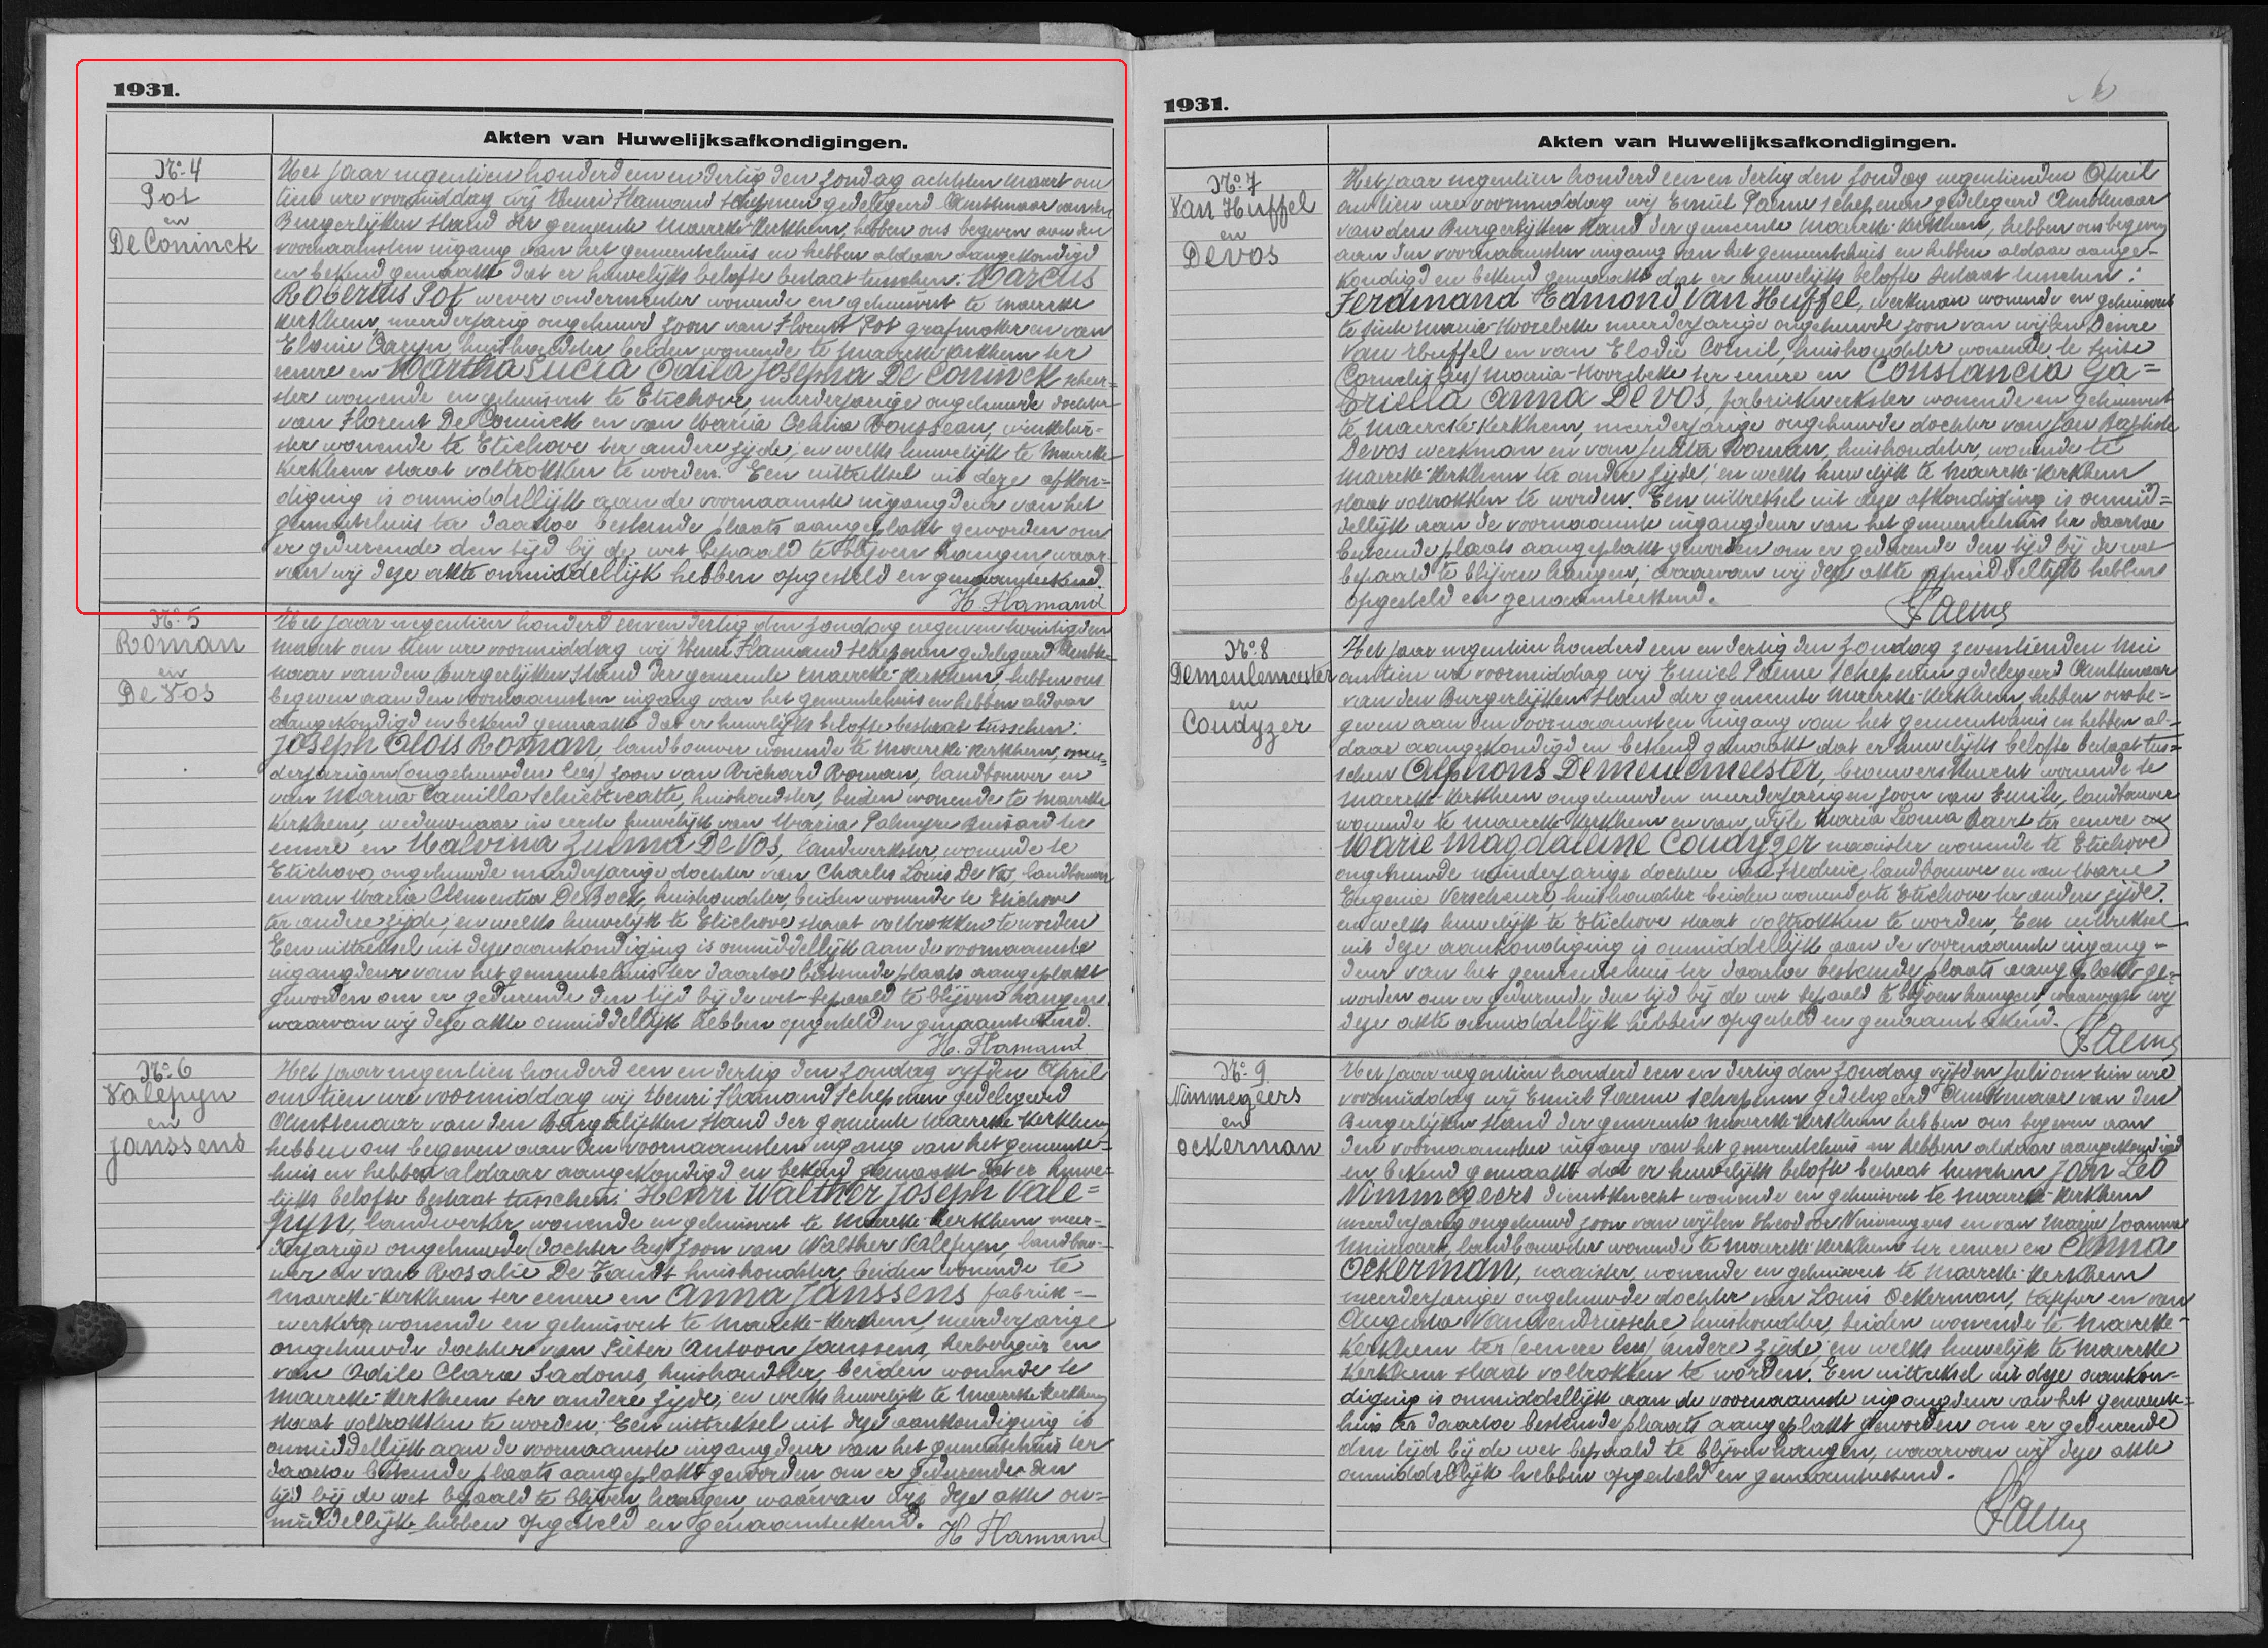 1931.
Akten van Huwelijksafkondigingen.
No. 4
Pot
en
De Coninck
Het jaar negentien honderd een en dertig den zondag achtsten Maart om
tien ure voormiddag wij Henri Flamand schepenen gedelegeerd Ambtenaar van den
Burgerlijken Stand der gemeente Maercke-Kerkhem, hebben ons begeven aan den
voornaamsten ingang van het gemeentehuis en hebben aldaar aangekondigd
en bekend gemaakt dat er huwelijks belofte bestaat tusschen: Marcus
Robertus Pot wever ondermeester wonende en gehuisvest te Maercke
Kerkhem, meerderjarig ongehuwd zoon van Florent Pot grafmaker en van
Elonie Baryn huishoudster beiden wonende te Maercke-Kerkhem ter
eenre en Martha Lucia Odila Josepha De Coninck scheer=
ster wonende en gehuisvest te Etichove, meerderjarige ongehuwde dochter
van Florent De Coninck en van Maria Octavia Rousseau, winkelier=
ster wonende te Etichove ter andere zijde; en welk huwelijk te Maercke-
Kerkhem staat voltrokken te worden. Een uittreksel uit deze afkon=
diging is onmiddellijk aan de voornaamste ingangdeur van het
gemeentehuis ter daartoe bestemde plaats aangeplakt geworden om
er gedurende den tijd bij de wet bepaald te blijven hangen, waar-
van wij deze akte onmiddellijk hebben opgesteld en genaamteekend.
H. Flamand
No. 5
Roman
en
De Vos
Het jaar negentien honderd een en dertig den zondag negen en twintigsten
Maart om tien ure voormiddag wij Henri Flamand schepenen gedelegeerd Ambte=
naar van den Burgerlijken Stand der gemeente Maercke-Kerkhem, hebben ons
begeven aan den voornaamsten ingang van het gemeentehuis en hebben aldaar
aangekondigd en bekend gemaakt dat er huwelijks belofte bestaat tusschen:
Joseph Aloïs Roman, landbouwer wonende te Maercke-Kerkhem, meer=
derjarigen (ongehuwden lees) zoon van Richard Roman, landbouwer en
van Maria Camilla Schietecatte, huishoudster, beiden wonende te Maercke
Kerkhem, weduwnaar in eerste huwelijk van Maria Palmyre Buisard ter
eenre en Malvina Zulma De Vos, landwerkster, wonende te
Etichove, ongehuwde meerderjarige dochter van Charles Louis De Vos landbouwer
en van Maria Clementia De Bock, huishoudster, beiden wonende te Etichove
ter andere zijde; en welk huwelijk te Etichove staat voltrokken te worden
Een uittreksel uit deze aankondiging is onmiddellijk aan de voornaamste
ingangdeur van het gemeentehuis ter daartoe bestemde plaats aangeplakt
geworden om er gedurende den tijd bij de wet bepaald te blijven hangen
waarvan wij deze akte onmiddellijk hebben opgesteld en genaamteekend.
H. Flamand
No. 6
Valepyn
en
Janssens
Het jaar negentien honderd een en dertig den zondag vijfden April
om tien ure voormiddag wij Henri Flamand Schepenen gedelegeerd
Ambtenaar van den Burgerlijken Stand der gemeente Maercke-Kerkhem
hebben ons begeven aan den voornaamsten ingang van het gemeente=
huis en hebben aldaar aangekondigd en bekend gemaakt dat er huwe=
lijks belofte bestaat tusschen: Henri Walther Joseph Vale=
pyn, landwerker, wonende en gehuisvest te Maercke-Kerkhem meer=
derjarige ongehuwde (dochter lees) zoon van Walther Valepyn, landbou=
wer en van Rosalie De Handt huishoudster, beiden wonende te
Maercke-Kerkhem ter eenre en Anna Janssens fabriek=
werkster, wonende en gehuisvest te Maercke-Kerkhem, meerderjarige
ongehuwde dochter van Pieter Antoon Janssens, herbergier en
van Odile Clara Sadones, huishoudster, beiden wonende te
Maercke-Kerkhem ter andere zijde; en welk huwelijk te Maercke-Kerkhem
staat voltrokken te worden. Een uittreksel uit deze aankondiging is
onmiddellijk aan de voornaamste ingangdeur van het gemeentehuis ter
daartoe bestemde plaats aangeplakt geworden om er gedurende den
tijd bij de wet bepaald te blijven hangen, waarvan wij deze akte on=
middellijk hebben opgesteld en genaamteekend.
H Flamand
1931.
Akten van Huwelijksafkondigingen.
No. 7
Van Huffel
en
Devos
Het jaar negentien honderd een en dertig den zondag negentienden April
om tien ure voormiddag wij Emiel Paeme schepenen gedelegeerd Ambtenaar
van den Burgerlijken Stand der gemeente Maercke-Kerkhem, hebben ons begeven
aan den voornaamsten ingang van het gemeentehuis en hebben aldaar aange=
kondigd en bekend gemaakt dat er huwelijks belofte bestaat tusschen:
Ferdinand Edmond Van Huffel, werkman wonende en gehuisvest
te Sinte Maria-Hoorebeke meerderjarige ongehuwde zoon van wijlen Désiré
Van Huffel en van Elodie Cornil, huishoudster wonende te Sinte
(Cornelis lees) Maria-Hoorebeke ter eenre en Constancia Ga=
briella Anna De Vos, fabriekwerkster wonende en gehuisvest
te Maercke-Kerkhem, meerderjarige ongehuwde dochter van Jan Baptiste
Devos werkman en van Julia Roman, huishoudster, wonende te
Maercke-Kerkhem ter andere zijde; en welk huwelijk te Maercke-Kerkhem
staat voltrokken te worden. Een uittreksel uit deze afkondiging is onmid=
dellijk aan de voornaamste ingangdeur van het gemeentehuis ter daartoe
bestemde plaats aangeplakt geworden om er gedurende den tijd bij de wet
bepaald te blijven hangen; waarvan wij deze akte onmiddellijk hebben
opgesteld en genaamteekend.
Paeme
No. 8
Demeulemeester
en
Coudyzer
Het jaar negentien honderd een en dertig den zondag zeventienden Mei
om tien ure voormiddag wij Emiel Paeme schepenen gedelegeerd Ambtenaar
van den Burgerlijken Stand der gemeente Maercke-Kerkhem, hebben ons be=
geven aan den voornaamsten ingang van het gemeentehuis en hebben al=
daar aangekondigd en bekend gemaakt dat er huwelijks belofte bestaat tus=
schen Alphons Demeulemeester, brouwersknecht wonende te
Maercke-Kerkhem ongehuwden meerderjarigen zoon van Emile, landbouwer
wonende te Maercke-Kerkhem en van wijle Maria Leonia Baert ter eenre en
Marie Magdaleine Coudyzer naaister wonende te Etichove
ongehuwde minderjarige dochter van Frederic, landbouwer en van Marie
Eugenie Verscheure, huishoudster beiden wonende te Etichove ter andere zijde.
en welk huwelijk te Etichove staat voltrokken te worden, Een uittreksel
uit deze aankondiging is onmiddellijk aan de voornaamste ingang=
deur van het gemeentehuis ter daartoe bestemde plaats aangeplakt ge=
worden om er gedurende den tijd bij de wet bepaald te blijven hangen, waarvan wij
deze akte onmiddellijk hebben opgesteld en genaamteekend.
Paeme
No. 9
Nimmegeers
en
Ockerman
Het jaar negentien honderd een en dertig den zondag vijfden Juli om tien ure
voormiddag wij Emiel Paeme schepenen gedelegeerd Ambtenaar van den
Burgerlijken Stand der gemeente Maercke-Kerkhem hebben ons begeven aan
den voornaamsten ingang van het gemeentehuis en hebben aldaar aangekondigd
en bekend gemaakt dat er huwelijks belofte bestaat tusschen Jan Leo
Nimmegeers dienstknecht wonende en gehuisvest te Maercke-Kerkhem
meerderjarig ongehuwd zoon van wijlen Theodoor Nimmegeers en van Maria Joanna
landbouwster wonende te Maercke-Kerkhem ter eenre en Anna
Ockerman, naaister, wonende en gehuisvest te Maercke-Kerkhem
meerderjarige ongehuwde dochter van Louis Ockerman, tapper en van
Augusta Vandendriessche, huishoudster, beiden wonende te Maercke-
Kerkhem ter (eenre lees) andere zijde; en welk huwelijk te Maercke
Kerkhem staat voltrokken te worden. Een uittreksel uit deze aankon=
diging is onmiddellijk aan de voornaamste ingangdeur van het gemeente=
huis ter daartoe bestemde plaats aangeplakt geworden om er gedurende
den tijd bij de wet bepaald te blijven hangen, waarvan wij deze akte
onmiddellijk hebben opgesteld en genaamteekend.
Paeme